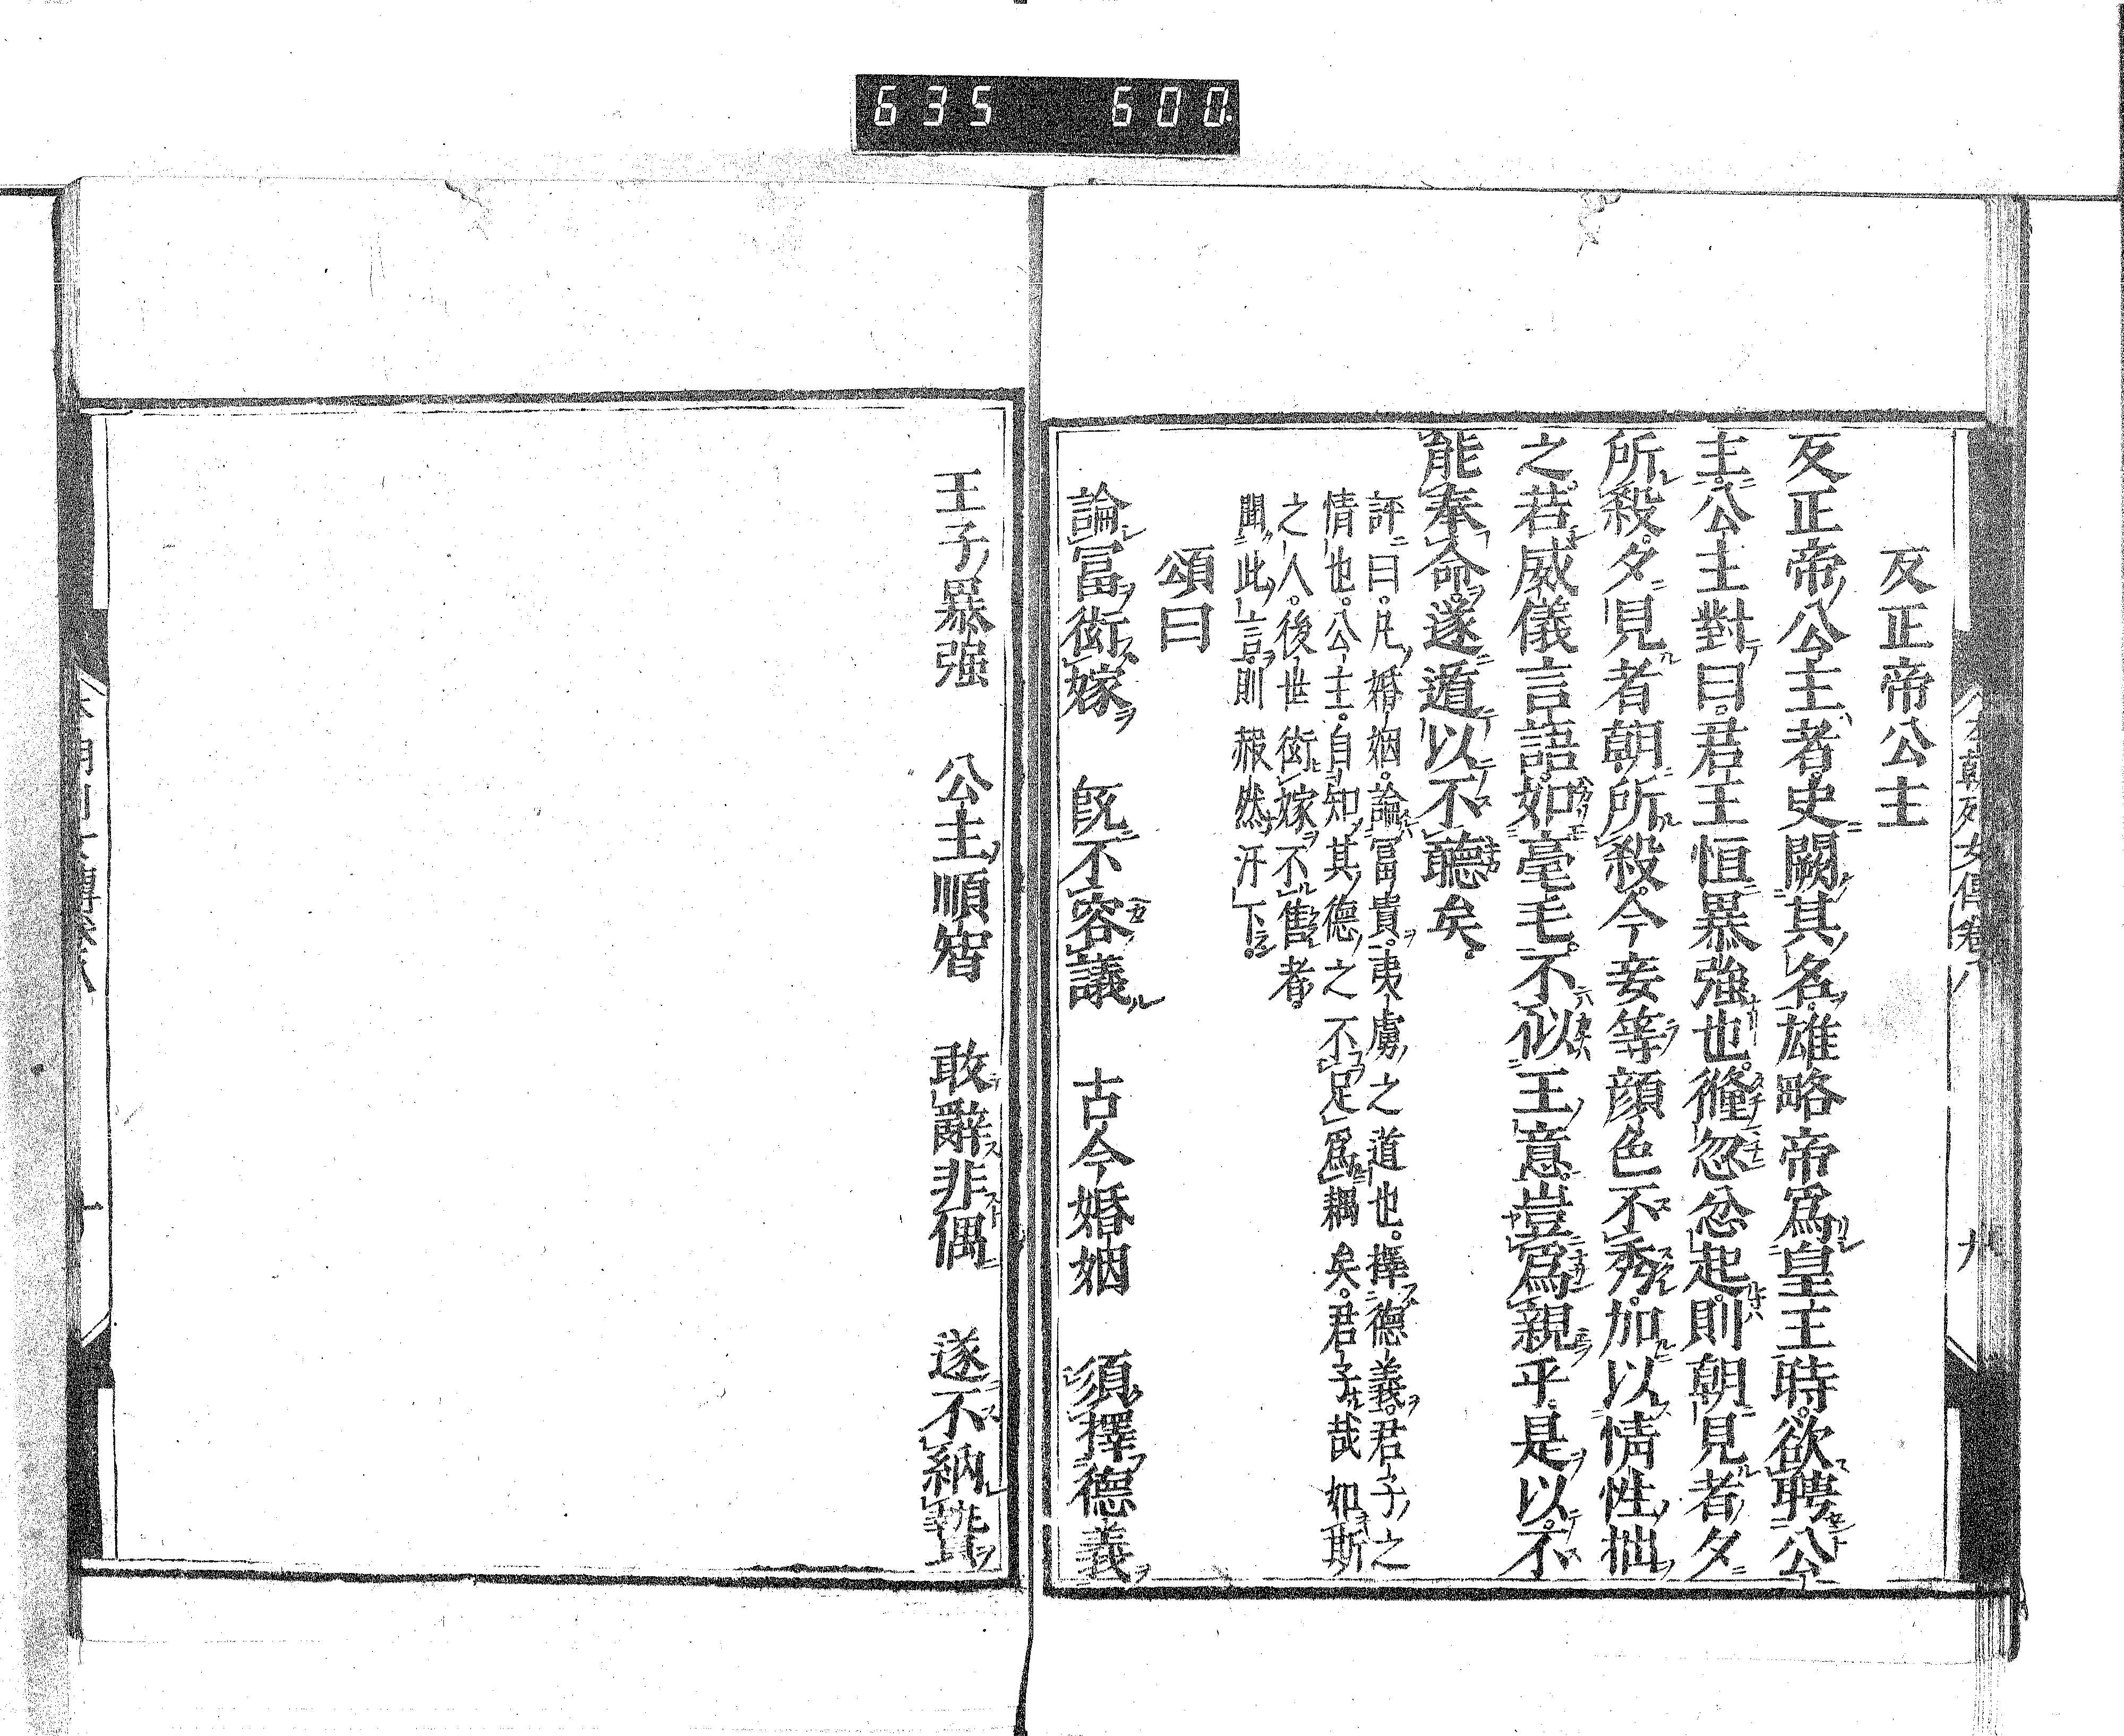 635 600.
本朝列女傳卷八
九
反正帝公主
反正帝公主者史闕其名雄略帝爲皇主時欲聘公
主公主對曰君王恒暴強也儵忽忿起則朝見者夕
所殺夕見者朝所殺今妾等顔色不秀加以情性拙
之若威儀言語如毫毛不似王意豈爲親乎是以不
能奉命遂遁以不聽矣
評曰凡婚姻論冨貴夷虜之道也擇德義君子之
情也公主自知其德之不足爲耦矣君子哉如斯
之人後世衒嫁不售者
聞此言則赧然汗下
頌曰
論冨衒嫁 既不容議 古今婚姻 須擇德義
王子暴强 公主順智 敢辭非偶 遂不納贄